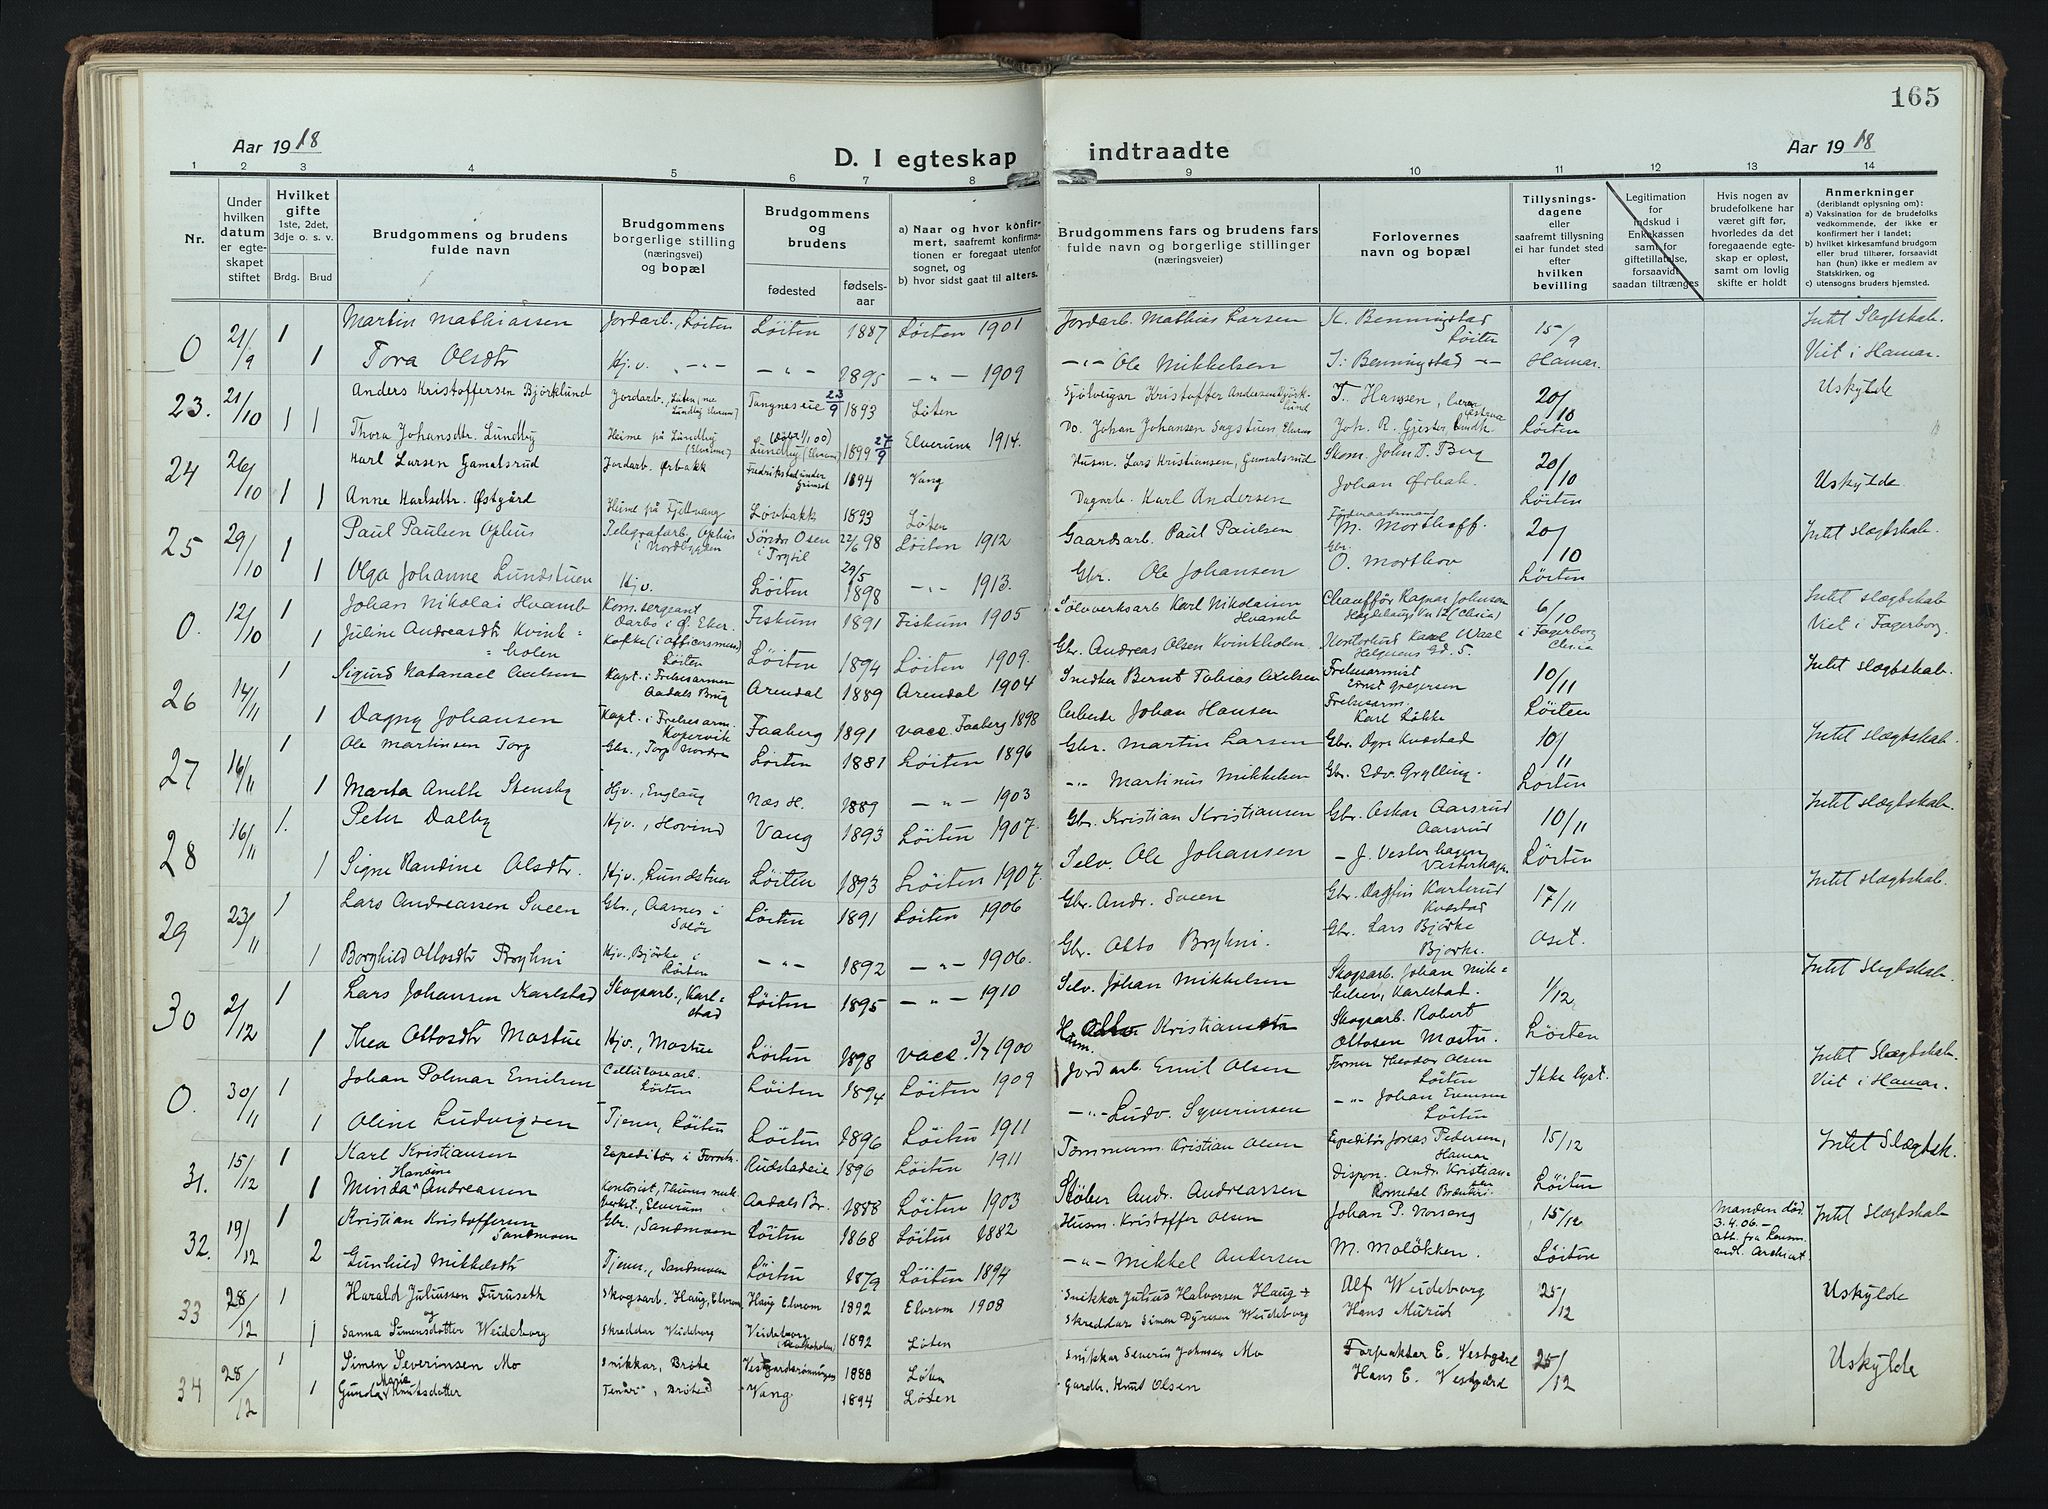 165
Aar 1918
D. I egteskap indtraadte
Aar 1918
1 2 3 4 5 6 7 8 9 10 11 12 13 14
Nr.
Under hvilken datum er egteskapet stiftet
Hvilket gifte 1ste, 2det, 3dje o. s. v.
Brdg. Brud
Brudgommens og brudens fulde navn
Brudgommens borgerlige stilling (næringsvei) og bopæl
Brudgommens og brudens
fødested
fødselsaar
a) Naar og hvor konfirmert, saafremt konfirmationen er foregaat utenfor sognet, og
b) hvor sidst gaat til alters.
Brudgommens fars og brudens fars fulde navn og borgerlige stillinger (næringsveier)
Forlovernes navn og bopæl
Tillysningsdagene eller saafremt tillysning ei har fundet sted efter hvilken bevilling
Legitimation for indskud i Enkekassen samt for giftetillatelse, forsaavidt saadan tiltrænges
Hvis nogen av brudefolkene har været gift før, hvorledes da det foregaaende egteskap er opløst, samt om lovlig skifte er holdt
Anmerkninger (deriblandt oplysning om):
a) Vaksination for de brudefolks vedkommende, der ikke er konfirmert her i landet;
b) hvilket kirkesamfund brudgom eller brud tilhører, forsaavidt han (hun) ikke er medlem av Statskirken, og
c) utensogns bruders hjemsted.
0 21/9 1 Martin Mathiassen Jordarb., Løiten Løiten 1887 Løiten 1901 Jordarb. Mathias Larsen K. Benningstad Løiten 15/9 Intet Slegtskab.
1 Tora Olsdtr Hj.v. -"- -"- 1895 -"- 1909 -"- Ole Mikkelsen I. Benningstad -"- Hamar. Viet i Hamar.
23. 21/10 1 1 Anders Kristoffersen Bjørklund Jordarb., Løten, Tangnes eie 23/9 1893 Løten Sjølveigar Kristoffer Andersen Bjørklund T. Hansen, 20/10 Uskylde
Thora Johansdtr. Lundby Heime på Lundby (Elverum) Lundby (Elverum) 1899 27/9 Elverum 1914. Do. Johan Johansen Sagstuen Elverum Joh. R. Gjester Løiten
24 26/10 1 Karl Larsen Gamalsrud Jordarb. Ørbakk Fredrikstad under 1894 Vang Husm. Lars Kristiansen, Gumalsrud Skom. John T. Berg 20/10 Uskylde
1 Anne Karlsdtr. Østgård Heime på Fjellvang Løvbakk 1893 Løten Dagarb. Karl Andersen Johan Ørbak. Løiten
25 29/10 1 Paul Paulsen Ophus Telegrafarb., Ophus i Nordbygden Søndre Osen i Trysil 22/6 98 Løiten 1912 Gaardsarb. Paul Paulsen Føderaadsmand M. Morthoff. 20/10 Intet slægtskab.
1 Olga Johanne Lundstuen Hjv. Løiten 29/5 1898 -"- 1913. Gbr. Ole Johansen Gbr. O. Morthov Løiten
0. 12/10 1 Johan Nikolai Hvamb Kom.sergeant Fiskum 1891 Fiskum 1905 Sølvverksarb Karl Nikolaisen Hvamb Chauffør Ragnar Johnsen 6/10 Intet slægtskab
1 Juline Andreasdtr Kvinkholen Løiten Løiten 1894 Løiten 1909. Gbr. Andreas Olsen Kvinkholen Kontorbud Karl Waal Helgesens Gd. 5. i Fagerborg Viet i Fagerborg.
26 14/11 1 Sigurd Natanael Axelsen Kapt. i Frelsesarmen Aadals Brug Arendal 1889 Arendal 1904 Snedker Bernt Tobias Axelsen Frelsesarmist Ernst Gregersen 10/11 Intet slægtskab.
1 Dagny Johansen Kapt. i Frelsesarm. Kopervik Faaberg 1891 vacc. Faaberg 1898 Johan Hansen Frelsesarm. Karl Løkke Løiten
27 16/11 1 Ole Martinsen Torp Gbr., Torp Nordre Løiten 1881 Løiten 1896 Gbr. Martin Larsen Gbr. Ogre Kvæstad 10/11 Intet slægtskab.
1 Marta Anette Stensby Hjv., Englaug Næs H. 1889 -"- 1903 -"- Martinus Mikkelsen Gbr. Edv. Grylling. Løiten
28 16/11 1. Peter Dalby Hjv., Hovind Vang 1893 Løiten 1907. Gbr. Kristian Kristiansen Gbr. Oskar Aarsrud Aarsrud 10/11 Intet slægtskab.
1 Signe Randine Olsdtr. Hjv., Lundstuen Løiten 1893 Løiten 1907. Selv. Ole Johansen - J. Vesterhagen Vesterhagen Løiten
29 23/11 1 Lars Andreassen Sveen Gbr., Aasnes i Solør Løiten 1891 Løiten 1906 Gbr. Andr. Sveen Gbr. Dagfin Karlsrud Kvæstad 17/11 Intet slægtskab.
1 Borghild Ottosdtr Bryhni Hjv., Bjørke i Løiten -"- 1892 -"- 1906. Gbr. Otto Bryhni. Gbr. Lars Bjørke Bjørke. Oset.
30 2/12 1 Lars Johansen Karlstad Skogsarb., Karlstad Løiten 1895 -"- 1910 Selv. Johan Mikkelsen Skogsarb. Johan Mikkelsen, Karlstad. 1/12 Intet Slegtskab.
1 Thea Ottosdtr Mostue Hjv., Mostue Løiten 1898 vacc. 3/7 1900 Husm. Otto Kristiansen Skogsarb. Robert Ottosen Mostu. Løiten
0. 30/11 1 Johan Polmar Emilsen Cellulosearb. Løiten Løiten 1894 Løiten 1909 Jordarb Emil Olsen Former Theodor Olsen Løiten Ikke lyst. Intet Slægtskab.
1 Oline Ludvigsen Tjener, Løiten Løiten 1896 Løiten 1911 -"- Ludv. Syverinsen -"- Johan Evensen Løiten Viet i Hamar.
31. 15/12 1 Karl Kristiansen Expeditør i Forretn. Rudstadeie 1896 Løiten 1911 Tømmerm. Kristian Olsen Expeditør Jonas Pedersen, Hamar 15/12 Intet Slægtsk.
1 Minda Hansine Andreassen Kontorist, Thunes mek. Verkst., Elverum Aadals Br. 1888 Løiten 1903 Støber Andr. Andreassen Dispon. Andr. Kristiansen Romedal Brænderi. Løiten
32. 19/12 1 Kristian Kristoffersen Sandmoen Gbr., Sandmoen Løiten 1868 Løiten 1882 Husm. Kristoffer Olsen Johan P. Norseng 15/12 Manden død 3.4.06. Intet Slegtskab
2 Gunhild Mikkelsdtr Tjener., Sandmoen Løiten 1879 Løiten 1894 -"- Mikkel Andersen M. Moløkken. Løiten Att. fra Lensm.
33 28/12 1 Harald Juliussen Furuseth Skogsarb. Haug, Elvrom Haug Elvrom 1892 Elvrom 1908 Snikkar Julius Halvorsen Haug + Alf Weideborg 25/12 Uskylde
og
1 Sanna Simensdotter Weideborg Skreddar Veideborg Veideborg 1892 Løten Skreddar Simen Dyresen Weideborg Hans Murud
34 28/12 1 Simen Severinsen Mo Snikkar, Brøte Vestgardsrønningen 1888 Løten Snikkar Severin Johnsen Mo Forpakter E. Vestgård 25/12 Uskylde
1 Gunda Marie Knutsdotter Tenår, Brøted Vang. 1894 Løten Gardbr. Knut Olsen Hans E. Vestgård